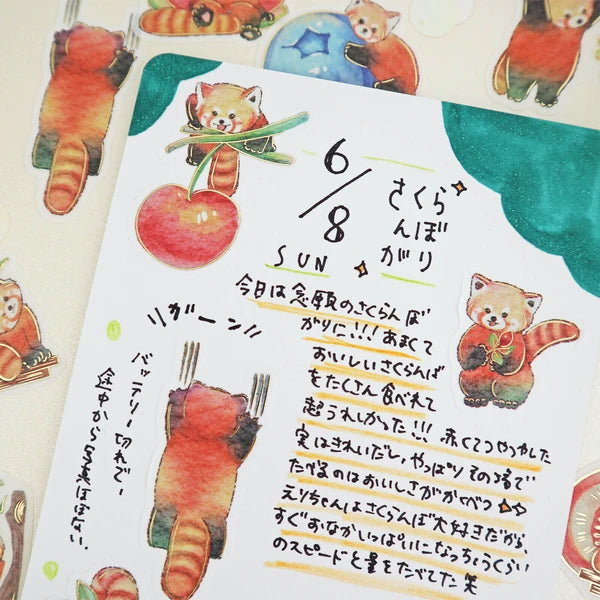 6/8
SUN
さくら
んぼ
がり
今日は念願のさくらんぼ
がりに!!! あまくて
おいしいさくらんぼ
をたくさん食べれて
超うれしかった!!! 赤くてつやつやした
実はきれいだし、やっぱりその場で
たべるのはおいしさがかくべつ
えりちゃんはさくらんぼ大好きだから、
すぐおなかいっぱいになっちゃうくらい
のスピードと量をたべてた笑
ガーン
バッテリー切れで
途中から写真ほぼない。